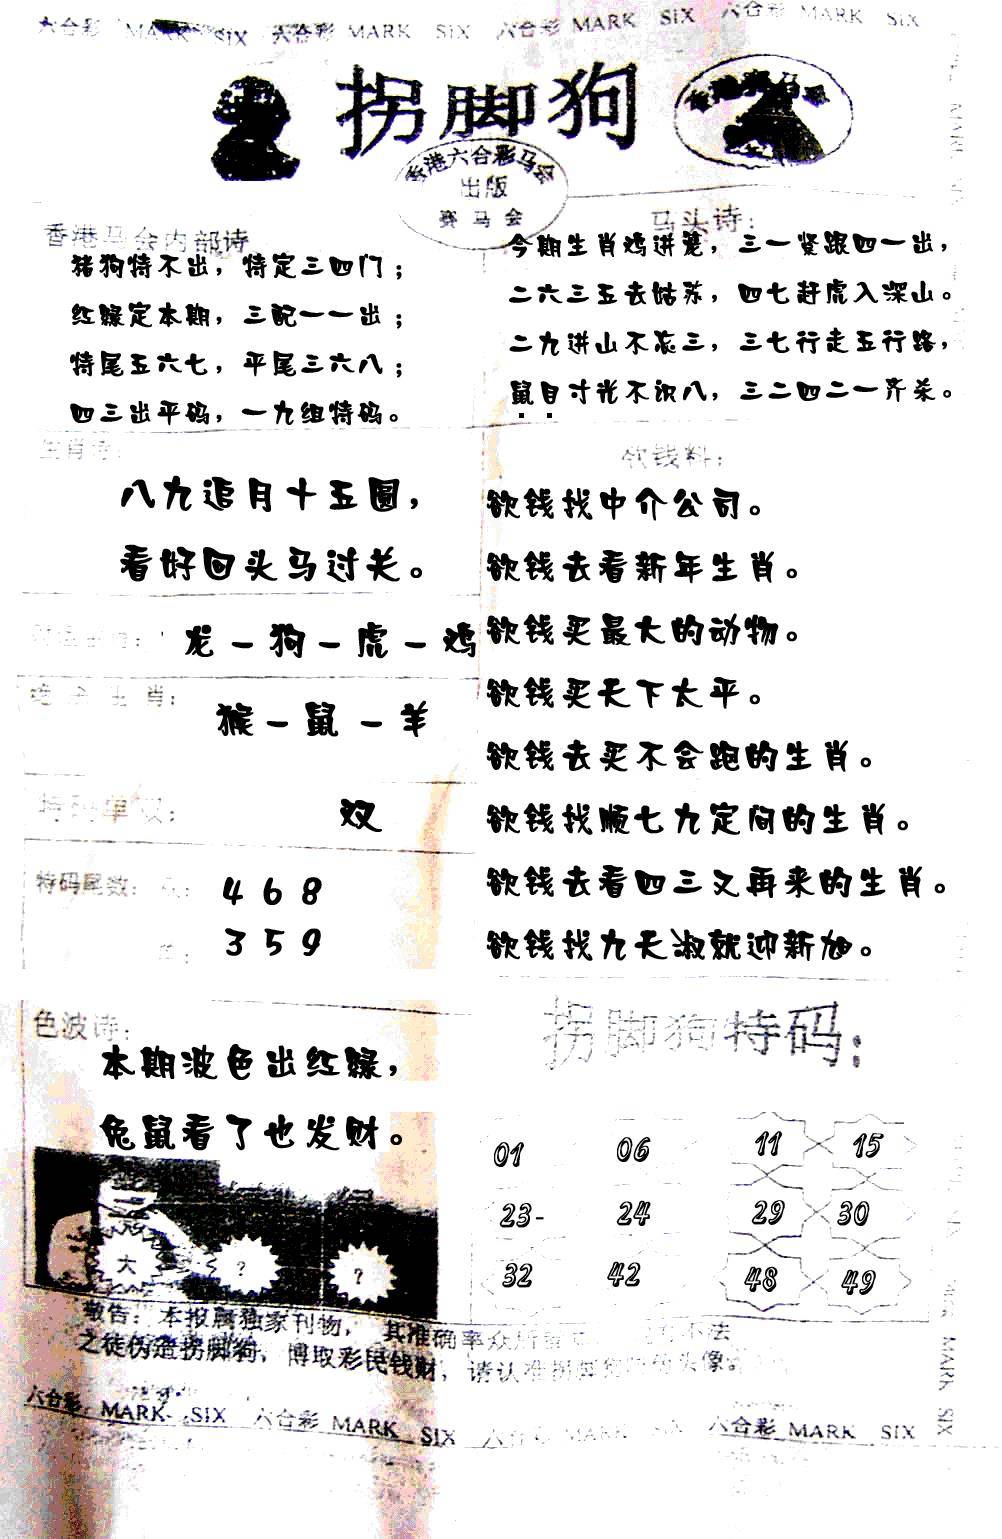 六合彩 MARK SIX 六合彩 MARK SIX 六合彩 MARK SIX 六合彩 MARK SIX
拐脚狗
香港六合彩马会
出版
赛马会
香港马会内部诗
猪狗特不出，特定三四门；
红绿定本期，三配一一出；
特尾五六七，平尾三六八；
四三出平码，一九组特码。
马头诗：
今期生肖鸡进笼，三一紧跟四一出，
二六三五去姑苏，四七赶虎入深山。
二九进山不忘三，三七行走五行路，
鼠目寸光不识八，三二四二一齐杀。
生肖诗：
八九追月十五圆，
看好回头马过关。
龙－狗－虎－鸡
生肖：
猴－鼠－羊
特码单双：
双
特码尾数：
4 6 8
3 5 9
欲钱料：
欲钱找中介公司。
欲钱去看新年生肖。
欲钱买最大的动物。
欲钱买天下太平。
欲钱去买不会跑的生肖。
欲钱找顺七九定间的生肖。
欲钱去看四三又再来的生肖。
欲钱找九天淑就迎新旭。
色波诗：
本期波色出红绿，
兔鼠看了也发财。
大 ？ ？
拐脚狗特码：
01 06 11 15
23- 24 29 30
32 42 48 49
敬告：本报属独家刊物，其准确率众所 不法
之徒伪造拐脚狗，博取彩民钱财，请认准拐脚 头像。
六合彩 MARK SIX 六合彩 MARK SIX 六合彩 MARK SIX
MARK SIX